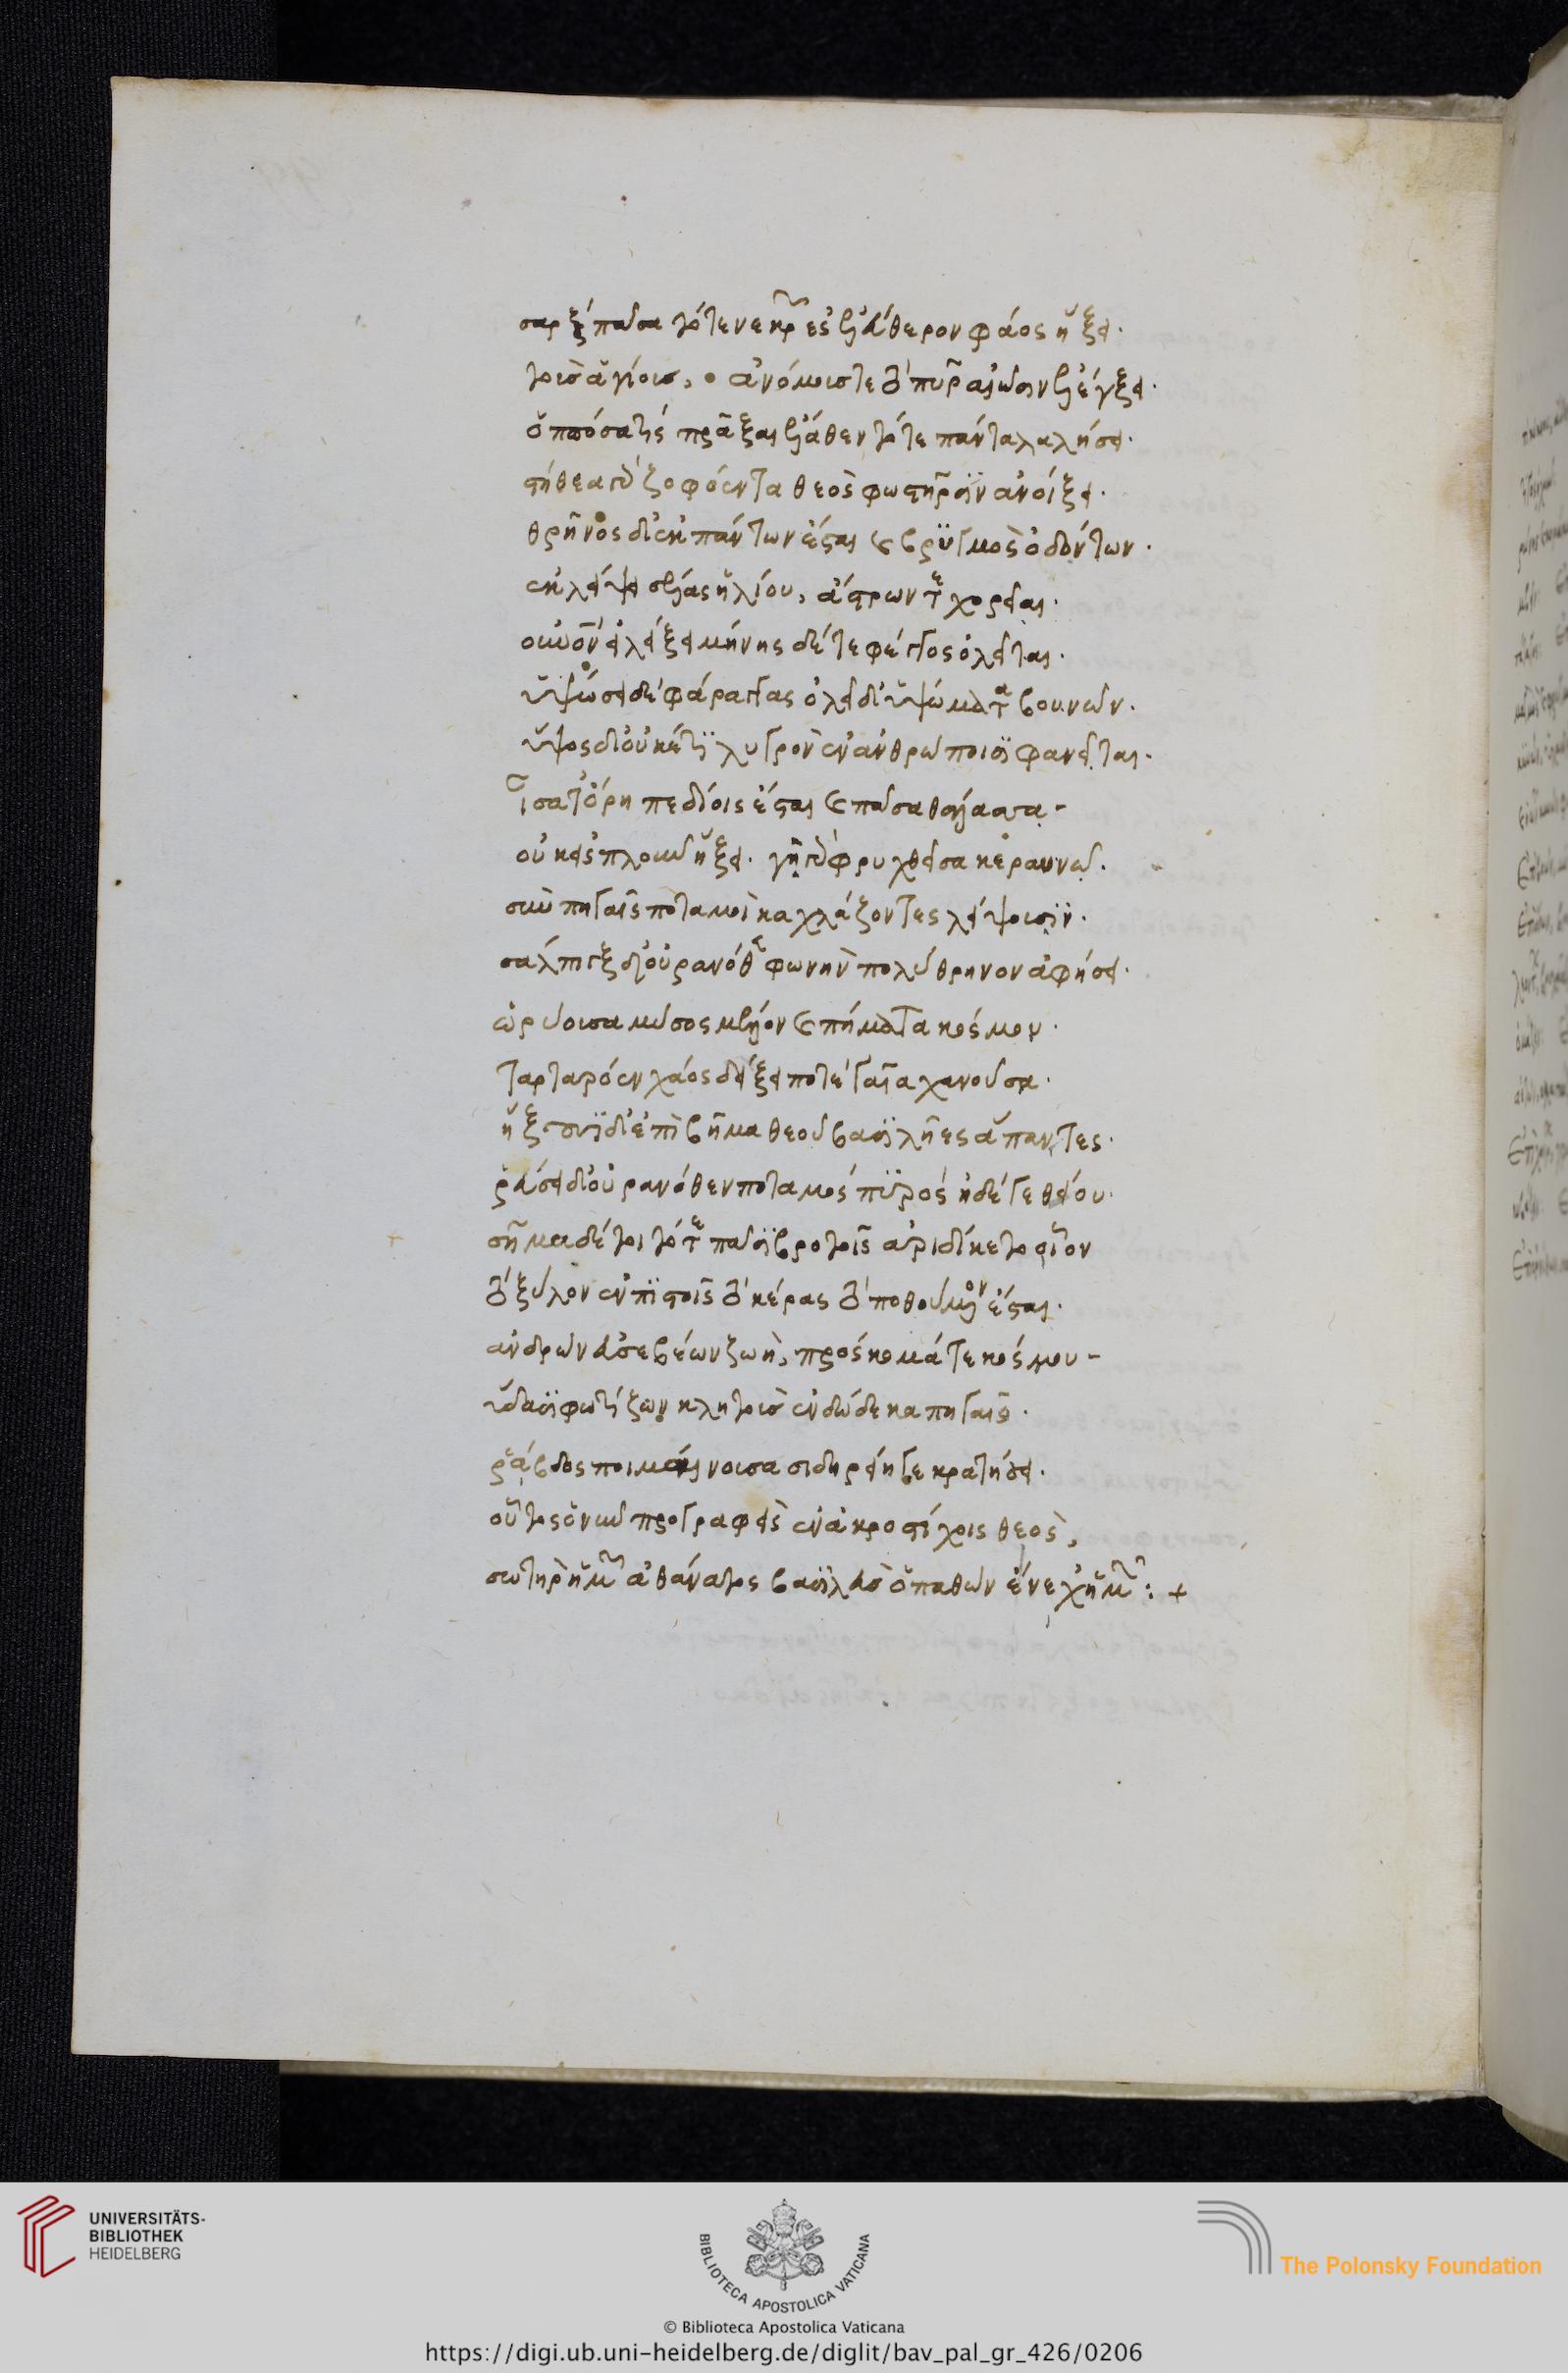 σαρξ πᾶσα τότε νεκρῶν ἐς ἐλεύθερον φάος ἥξει·
τοῖς ἁγίοις, ἀνόμοις τε τὸ πῦρ αἰῶσιν ἐλέγξει·
ὁππόσα τίς πράξας ἔλαθεν τότε πάντα λαλήσει·
στήθεα γὰρ ζοφόεντα θεὸς φωστῆρσιν ἀνοίξει·
θρῆνος δ' ἐκ πάντων ἔσται καὶ βρυγμὸς ὀδόντων·
ἐκλείψει σέλας ἡλίου, ἄστρων τε χορεῖαι·
οὐρανὸν εἱλίξει μήνης δέ τε φέγγος ὀλεῖται·
ὑψώσει δὲ φάραγγας ὀλεῖ δ' ὑψώματα βουνῶν·
ὕψος δ' οὐκέτι λυγρὸν ἐν ἀνθρώποισι φανεῖται·
ἶσα τ' ὄρη πεδίοις ἔσται καὶ πᾶσα θάλασσα
οὐκ εἰς πλοῦν ἥξει· γῆ γὰρ φρυχθεῖσα κεραυνῷ·
σὺν πηγαῖς ποταμοὶ καχλάζοντες λείψουσιν·
σάλπιγξ δ' οὐρανόθεν φωνὴν πολύθρηνον ἀφήσει·
ὠρύουσα μύσος μέλλον καὶ πήματα κόσμου·
ταρταρόεν χάος δείξει ποτὲ γαῖα χανοῦσα·
ἥξουσι δ' ἐπὶ βῆμα θεοῦ βασιλῆες ἅπαντες·
ῥεύσει δ' οὐρανόθεν ποταμὸς πυρὸς ἠδέ γε θείου·
σῆμα δέ τοι τότε πᾶσι βροτοῖς ἀριδείκετο οἷον
τὸ ξύλον ἐν πιστοῖς τὸ κέρας τὸ ποθούμενον ἔσται·
ἀνδρῶν εὐσεβέων ζωὴ, πρόσκομά τε κόσμου
ὕδασι φωτίζων κλητοὺς ἐν δώδεκα πηγαῖς·
ῥάβδος ποιμαίνουσα σιδηρείη γε κρατήσει·
οὗτος ὁ νῦν προγραφεὶς ἐν ἀκροστίχοις θεὸς,
σωτὴρ ἡμῶν ἀθάνατος βασιλεὺς ὁ παθὼν ἕνεχ' ἡμῶν: +
UNIVERSITÄTS-
BIBLIOTHEK
HEIDELBERG
BIBLIOTECA APOSTOLICA VATICANA
The Polonsky Foundation
© Biblioteca Apostolica Vaticana
https://digi.ub.uni-heidelberg.de/diglit/bav_pal_gr_426/0206